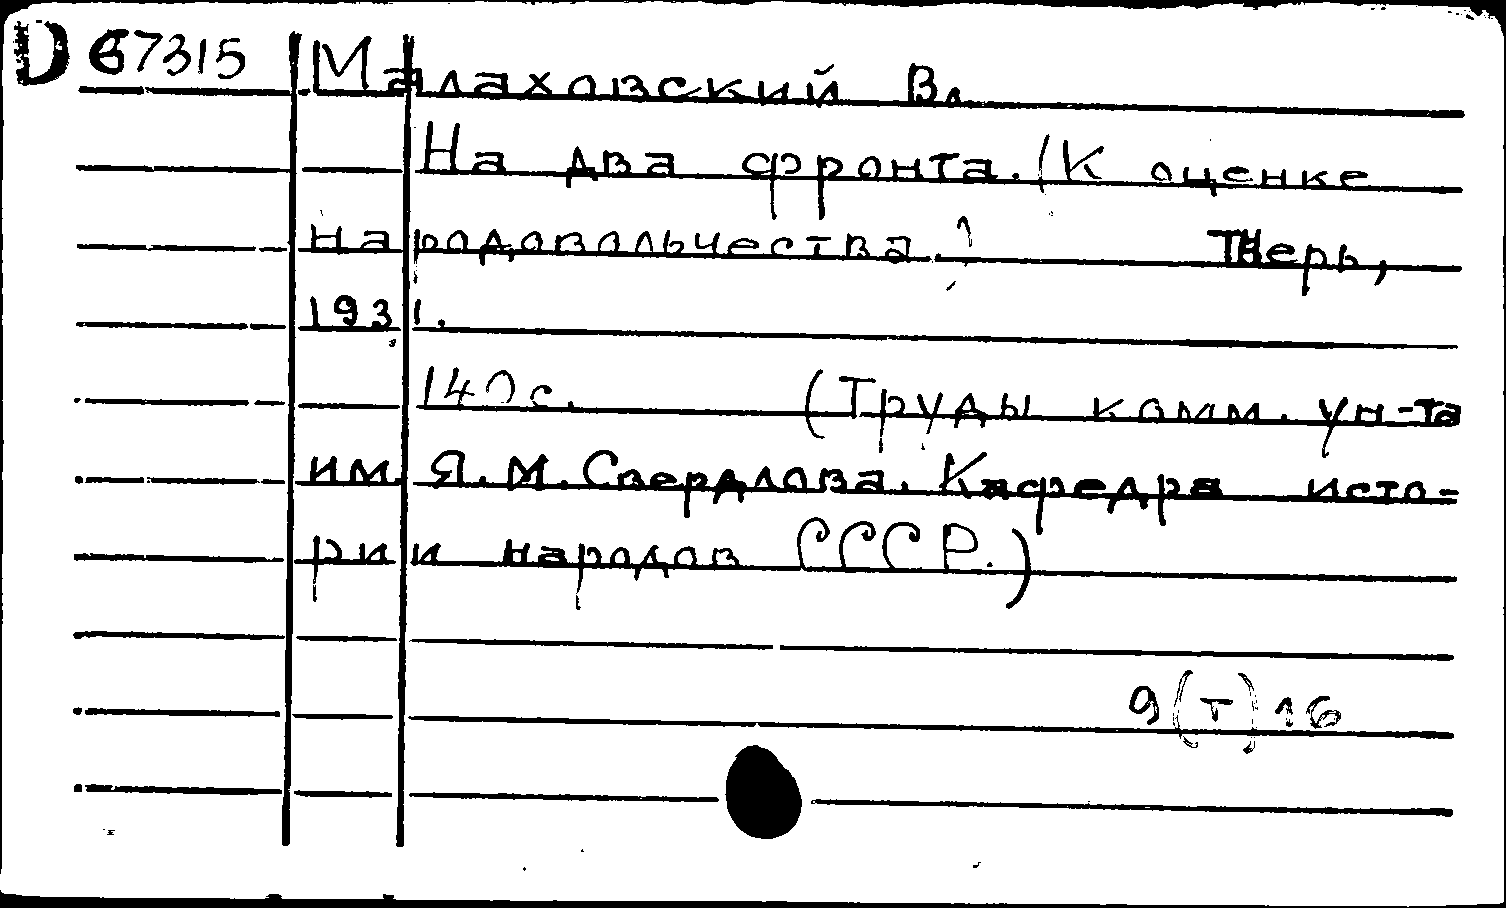 D 67315 Малаховский Вл.
На два фронта. (К оценке
народовольчества.) Тверь,
1931.
140 с. (Труды комм. ун-та
им. Я. М. Свердлова. Кафедра исто-
рии народов СССР.)
9(т)16